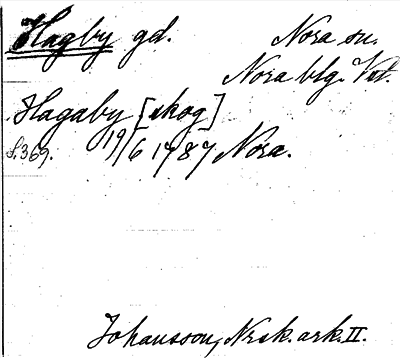 Hagby gd. Nora sn.
Nora blg. Vstl.
Hagaby [skog]
S. 369. 19/6 1787 Nora.
Johansson, Norsk. ark. II.